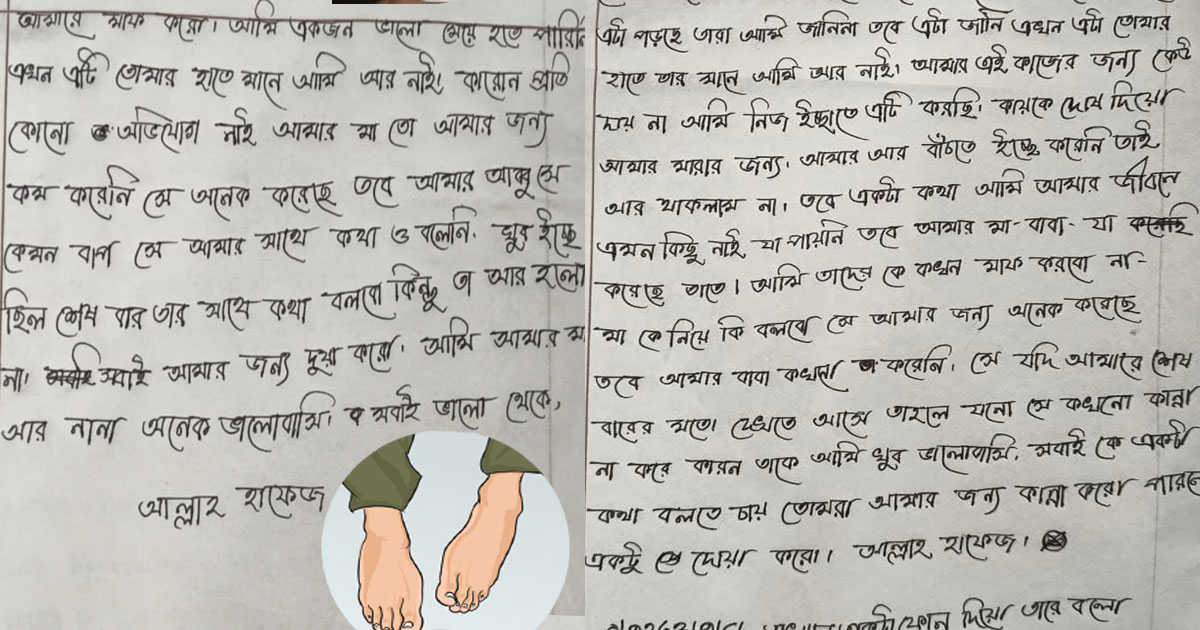 আমারে মাফ করো। আমি একজন ভালো মেয়ে হতে পারিনি
এখন এটি তোমার হাতে মানে আমি আর নাই। কারোন প্রতি
কোনো অভিযোগ নাই আমার মা তো আমার জন্য
কম করেনি সে অনেক করেছে তবে আমার আব্বু সে
কেমন বাপ সে আমার সাথে কথা ও বলেনি। খুব ইচ্ছে
ছিল শেষ বার তার সাথে কথা বলবো কিন্তু তা আর হলো
না। সবাই আমার জন্য দুয়া করো। আমি আমার মা
আর নানা অনেক ভালোবাসি। সবাই ভালো থেকে,
আল্লাহ হাফেজ
এটা পড়ছে তারা আমি জানিনা তবে এটা জানি এখন এটা তোমার
হাতে তার মানে আমি আর নাই। আমার এই কাজের জন্য কেউ
দায় না আমি নিজ ইচ্ছাতে এটি করছি। কারকে দোষ দিয়ো
আমার মারার জন্য। আমার আর বাঁচতে ইচ্ছে করেনি তাই
আর থাকলাম না। তবে একটা কথা আমি আমার জীবনে
এমন কিছু নাই যা পায়নি তবে আমার মা-বাবা- যা
করেছে তাতে। আমি তাদের কে কখন মাফ করবো না-
মা কে নিয়ে কি বলবো সে আমার জন্য অনেক করেছে
তবে আমার বাবা কখনো করেনি। সে যদি আমারে শেষ
বারের মতো দেখতে আসে তাহলে যনো সে কখনো কান্না
না করে কারন তাকে আমি খুব ভালোবাসি। সবাই কে একটা
কথা বলতে চায় তোমরা আমার জন্য কান্না করো পারলে
একটু দোয়া করো। আল্লাহ হাফেজ।
ফোন দিয়ো তারে বলো